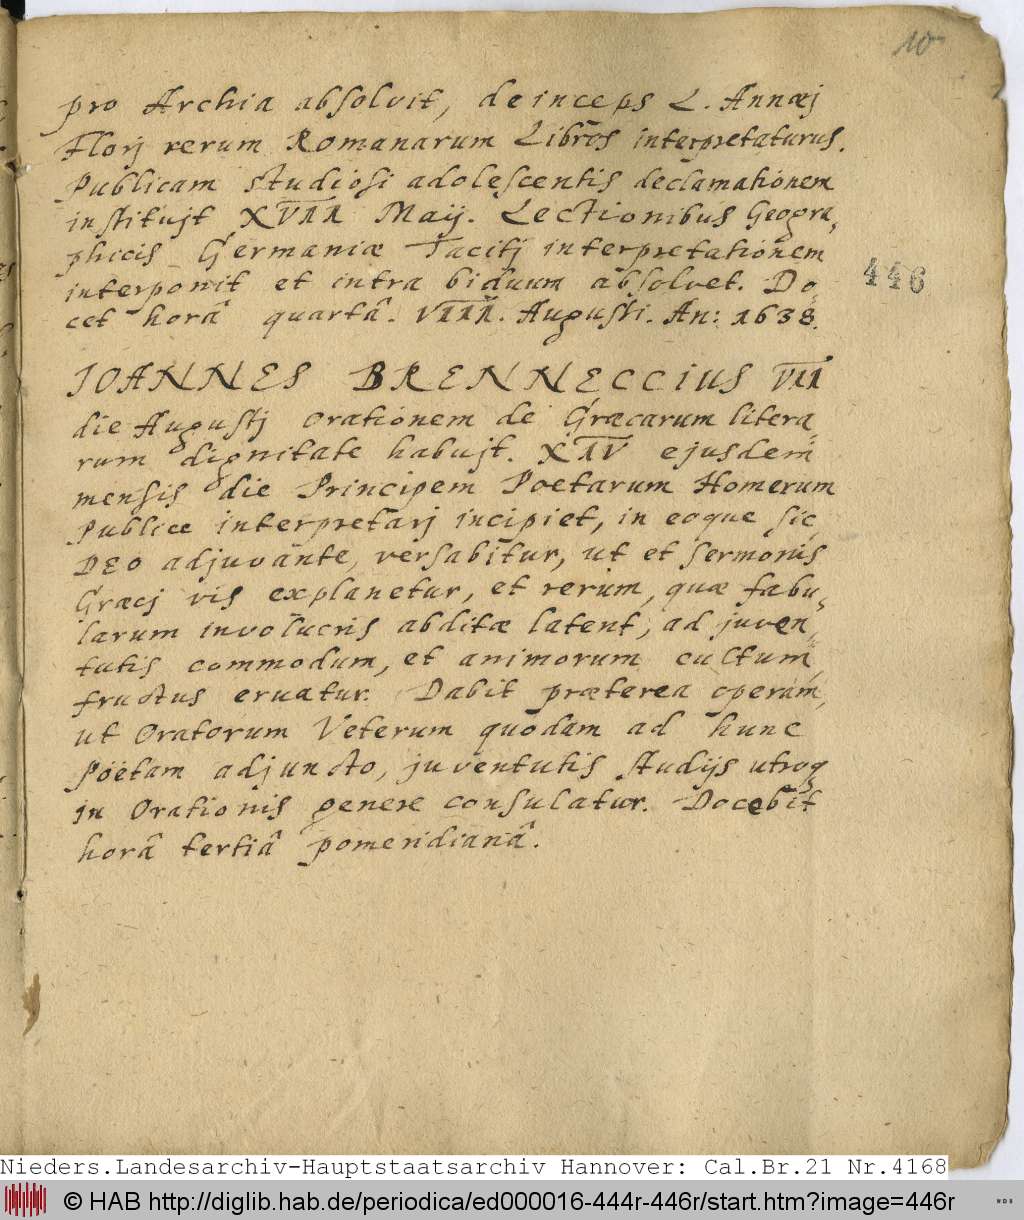 10
pro Archia absolvit, deinceps L. Annæj
Florj rerum Romanarum Libros interpretaturus.
Publicam studiosi adolescentis declamationem
instituit XVIII Maij. Lectionibus Geogra,
phicis Germaniæ Tacitj interpretationem
interponit et intra biduum absolvet. Do
cet horâ quartâ. VIII. Augusti. An: 1638.
446
JOANNES BRENNECCIUS VII
die Augustj Orationem de Græcarum litera
rum dignitate habuit. XIV ejusdem
mensis die Principem Poetarum Homerum
Publice interpretarj incipiet, in eoque sic,
DEO adjuvante, versabitur, ut et sermonis
Græcj vis explanetur, et rerum, quæ fabu,
larum involucris abditæ latent, ad juven,
tutis commodum, et animorum cultum,
fructus eruatur. Dabit præterea operam,
ut Oratorum Veterum quodam ad hunc
Poëtam adjuncto, juventutis studijs utroq
in Orationis genere consulatur. Docebit
horâ tertiâ pomeridianâ.
Nieders.Landesarchiv-Hauptstaatsarchiv Hannover: Cal.Br.21 Nr.4168
© HAB http://diglib.hab.de/periodica/ed000016-444r-446r/start.htm?image=446r